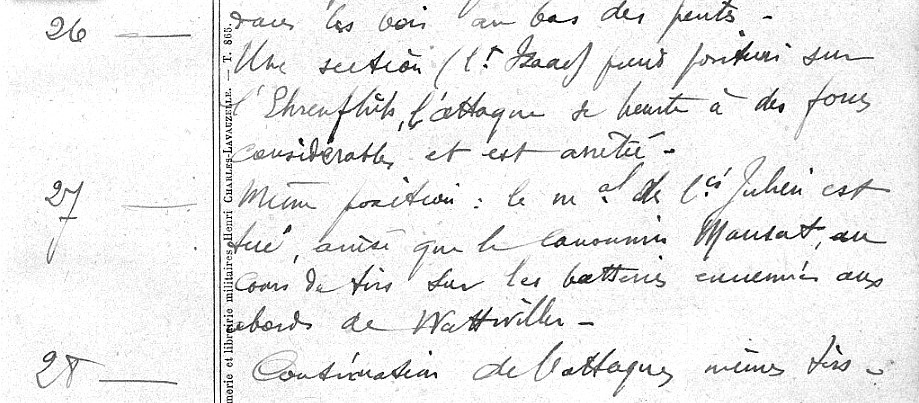 26 — dans les bois au bas des pents -
Une section (Lt Isaac) prend position sur
l'Ehrenflüts, l'attaque se heurte à des forces
considérables et est arrêtée -
27 — Même position : le mal de lis Julien est
tué, ainsi que le canonnier Mansat, au
cours de tirs sur les batteries ennemies aux
abords de Wattwiller -
28 — Continuation de l'attaque, mêmes tirs -
merie et librairie militaires Henri CHARLES-LAVAUZELLE. — T. 865.